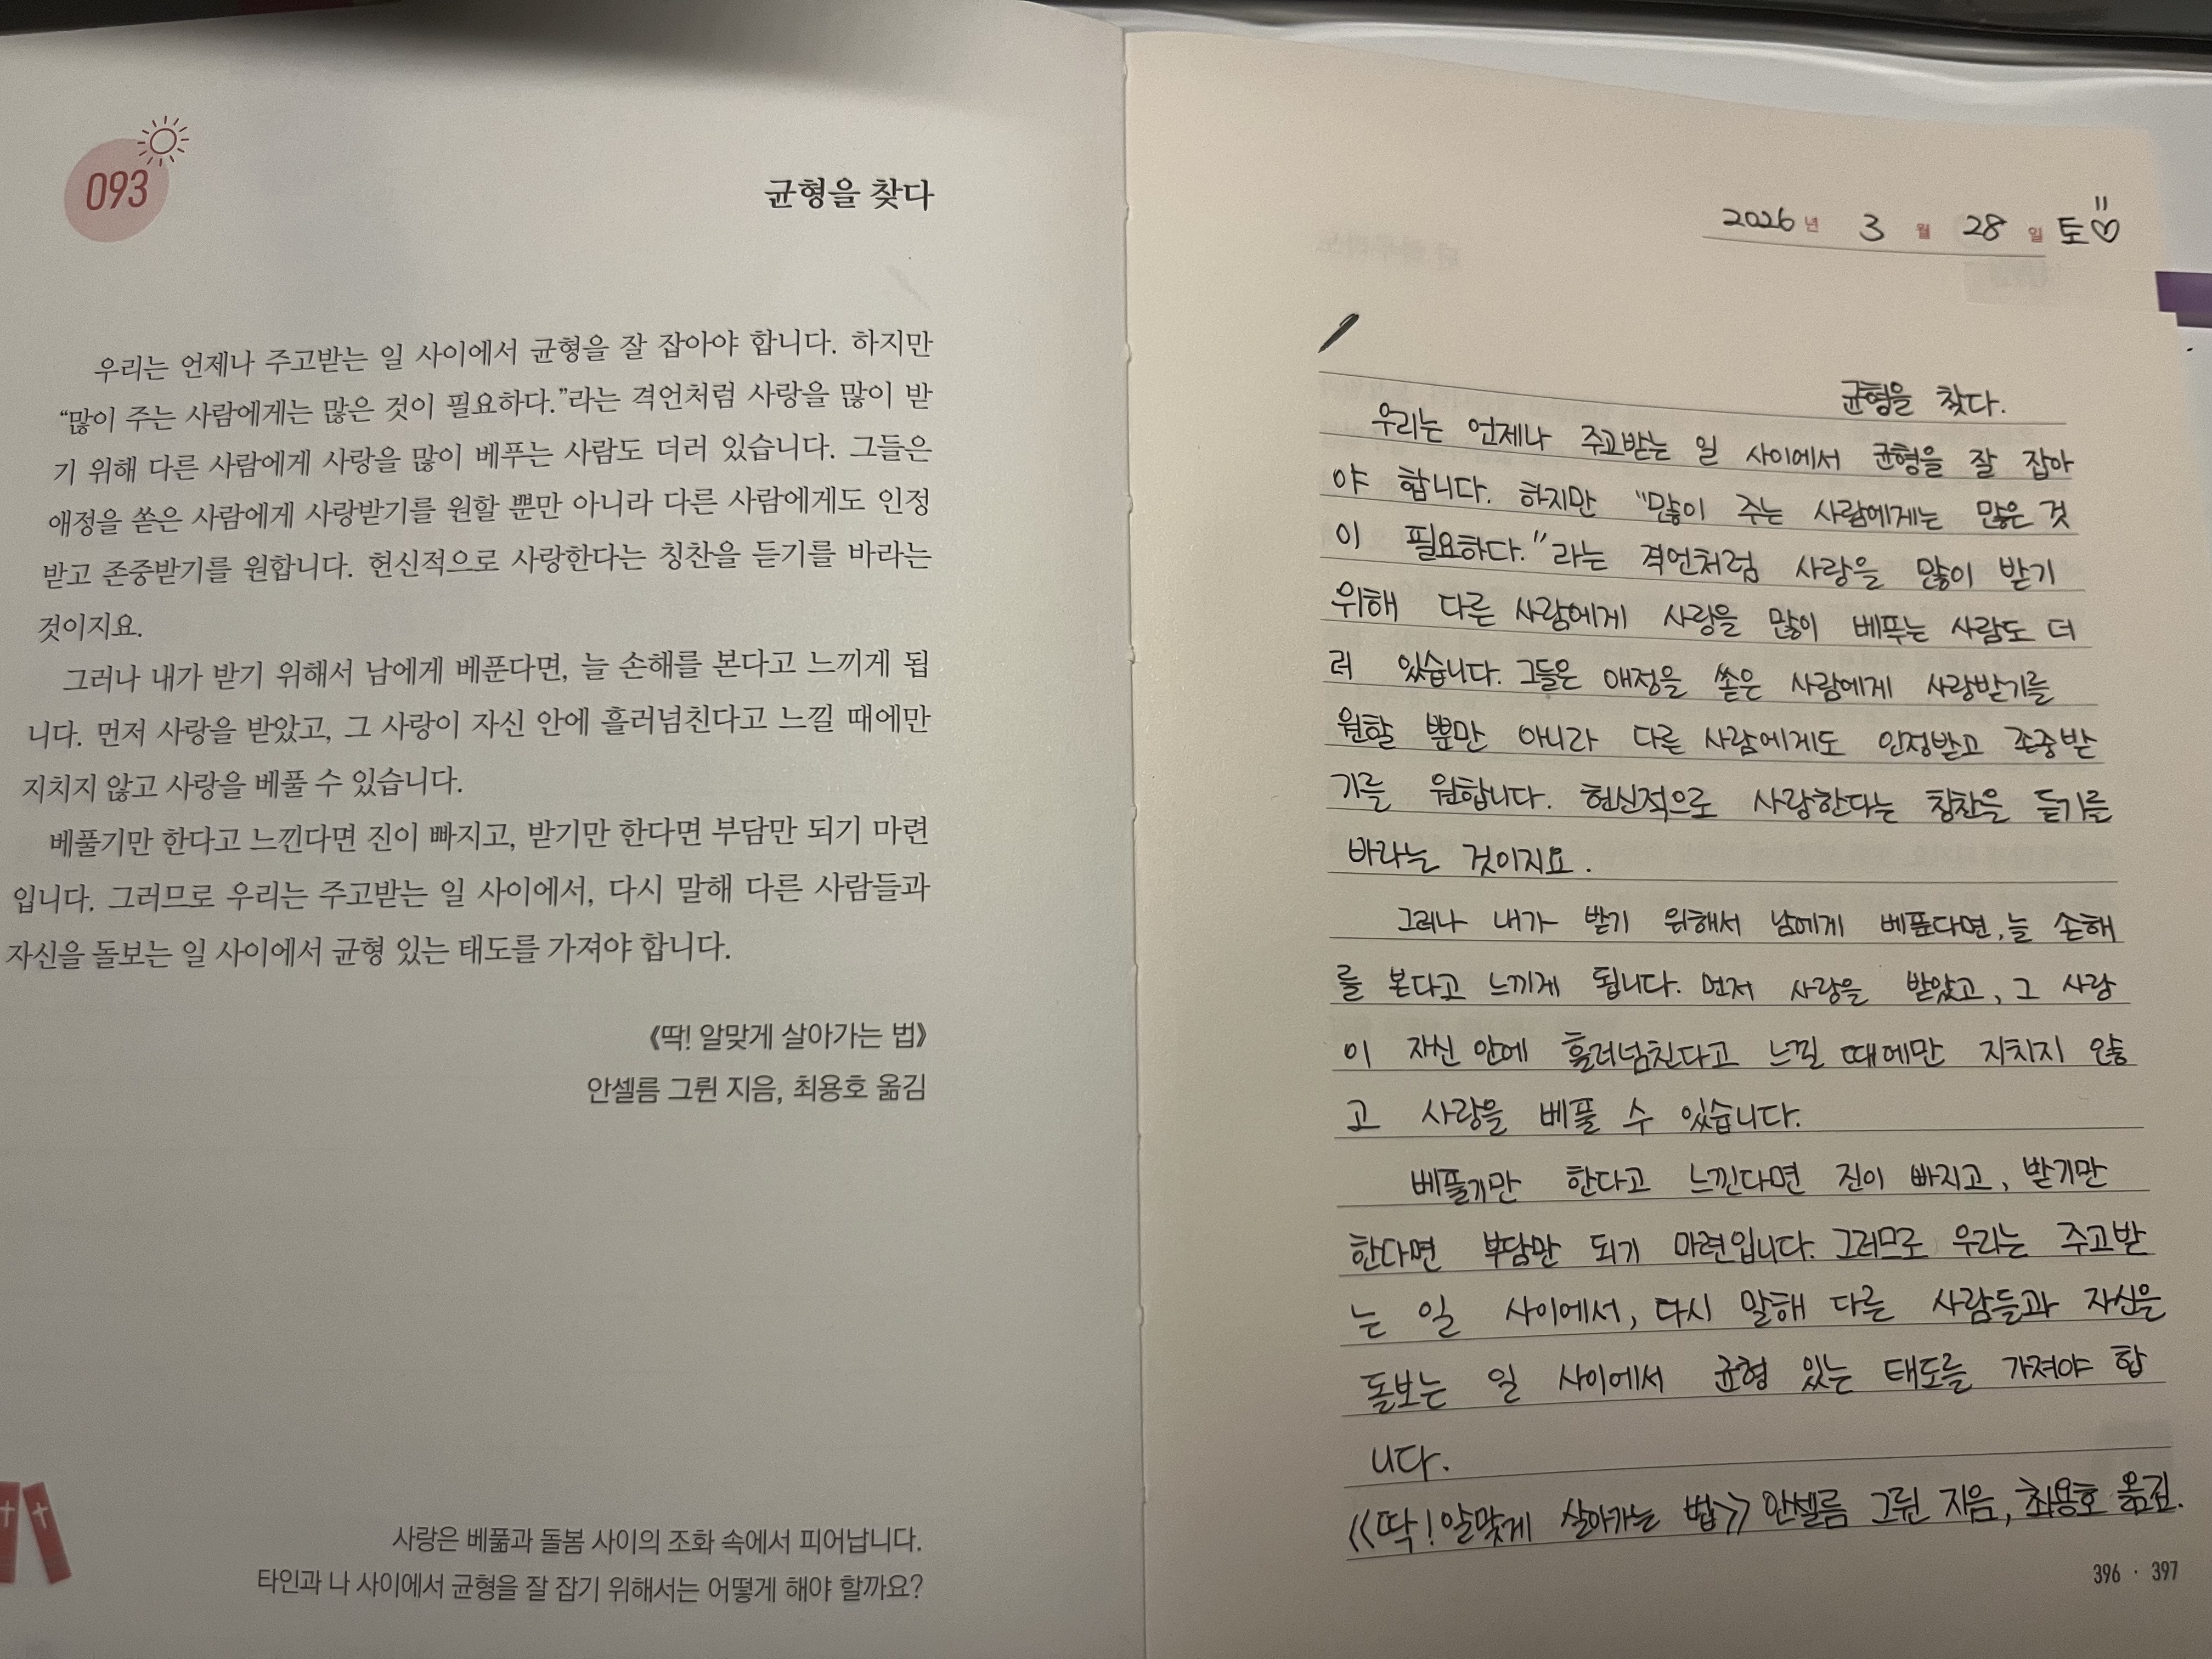 093
균형을 찾다
우리는 언제나 주고받는 일 사이에서 균형을 잘 잡아야 합니다. 하지만
“많이 주는 사람에게는 많은 것이 필요하다.”라는 격언처럼 사랑을 많이 받
기 위해 다른 사람에게 사랑을 많이 베푸는 사람도 더러 있습니다. 그들은
애정을 쏟은 사람에게 사랑받기를 원할 뿐만 아니라 다른 사람에게도 인정
받고 존중받기를 원합니다. 헌신적으로 사랑한다는 칭찬을 듣기를 바라는
것이지요.
그러나 내가 받기 위해서 남에게 베푼다면, 늘 손해를 본다고 느끼게 됩
니다. 먼저 사랑을 받았고, 그 사랑이 자신 안에 흘러넘친다고 느낄 때에만
지치지 않고 사랑을 베풀 수 있습니다.
베풀기만 한다고 느낀다면 진이 빠지고, 받기만 한다면 부담만 되기 마련
입니다. 그러므로 우리는 주고받는 일 사이에서, 다시 말해 다른 사람들과
자신을 돌보는 일 사이에서 균형 있는 태도를 가져야 합니다.
《딱! 알맞게 살아가는 법》
안셀름 그륀 지음, 최용호 옮김
사랑은 베풂과 돌봄 사이의 조화 속에서 피어납니다.
타인과 나 사이에서 균형을 잘 잡기 위해서는 어떻게 해야 할까요?
2026년 3월 28일 토♡
균형을 찾다.
우리는 언제나 주고받는 일 사이에서 균형을 잘 잡아
야 합니다. 하지만 “많이 주는 사람에게는 많은 것
이 필요하다.”라는 격언처럼 사랑을 많이 받기
위해 다른 사람에게 사랑을 많이 베푸는 사람도 더
러 있습니다. 그들은 애정을 쏟은 사람에게 사랑받기를
원할 뿐만 아니라 다른 사람에게도 인정받고 존중받
기를 원합니다. 헌신적으로 사랑한다는 칭찬을 듣기를
바라는 것이지요.
그러나 내가 받기 위해서 남에게 베푼다면, 늘 손해
를 본다고 느끼게 됩니다. 먼저 사랑을 받았고, 그 사랑
이 자신 안에 흘러넘친다고 느낄 때에만 지치지 않
고 사랑을 베풀 수 있습니다.
베풀기만 한다고 느낀다면 진이 빠지고, 받기만
한다면 부담만 되기 마련입니다. 그러므로 우리는 주고받
는 일 사이에서, 다시 말해 다른 사람들과 자신을
돌보는 일 사이에서 균형 있는 태도를 가져야 합
니다.
《딱! 알맞게 살아가는 법》 안셀름 그륀 지음, 최용호 옮김.
396 · 397